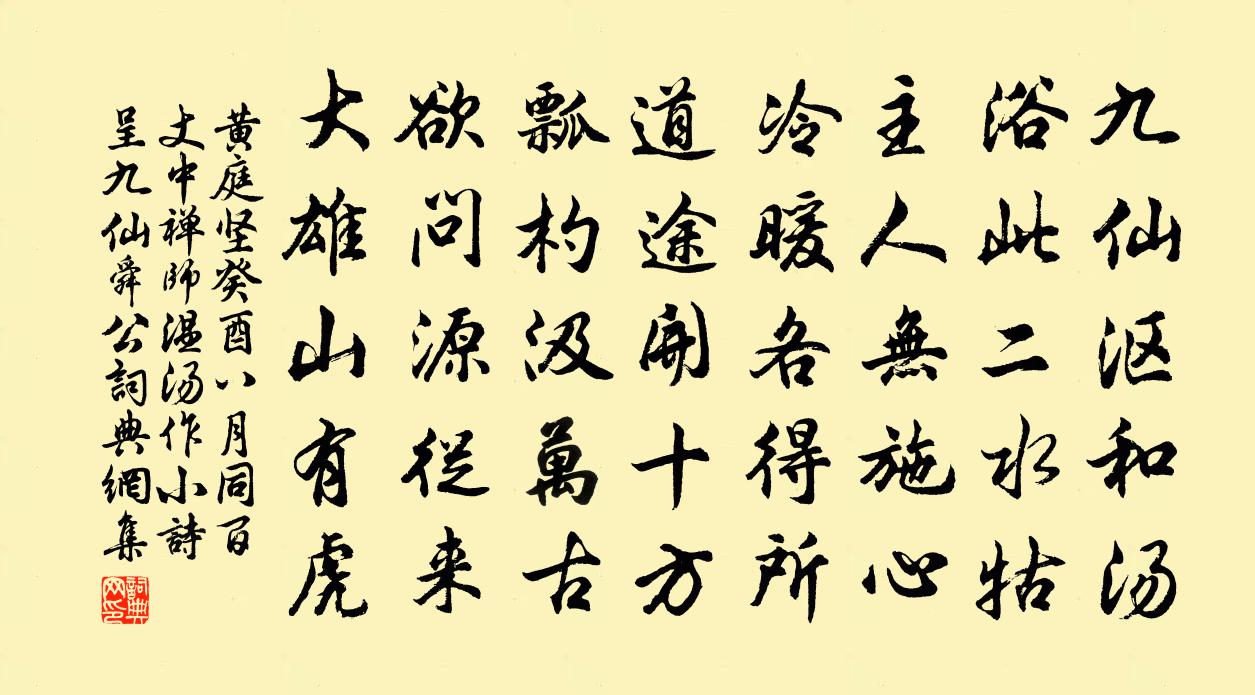 九仙沤和汤
浴此二水牯
主人無施心
冷暖各得所
道途開十方
瓢杓汲萬古
欲问源從来
大雄山有虎
黄庭坚癸酉八月同百
丈中禅師温汤作小詩
呈九仙舜公詞典網集
詞典网印